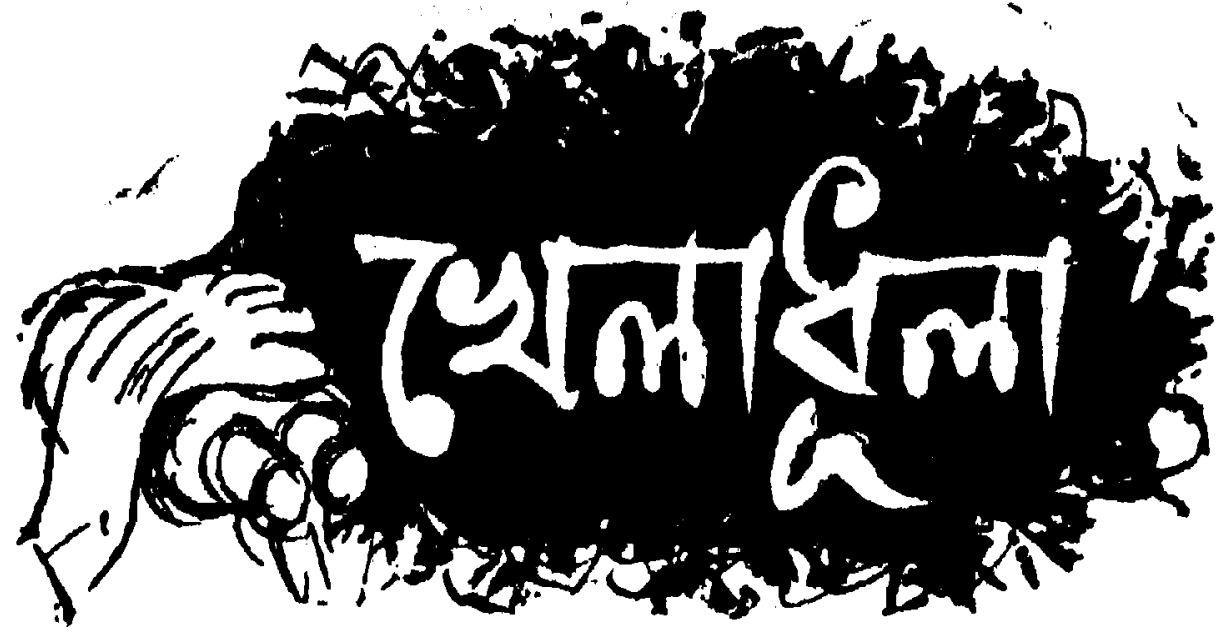 খেলাধূলা